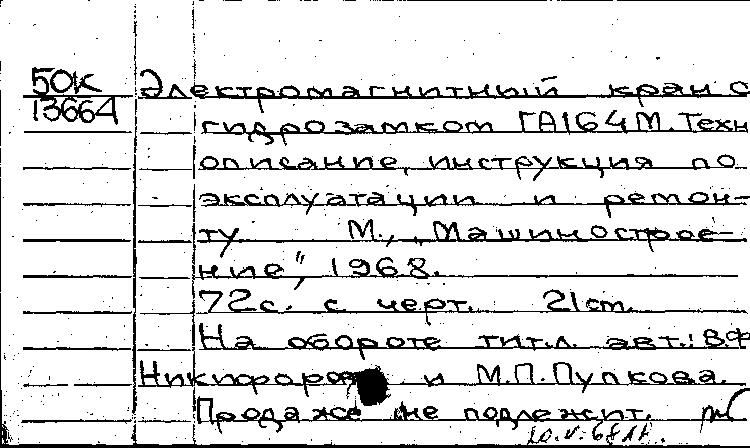 50К
13664
Электромагнитный кран с
гидрозамком ГА164М. Техн
описание, инструкция по
эксплуатации и ремон-
ту М., „Машинострое-
ние", 1968.
72с. с черт. 21cm.
На обороте тит.л. авт.: В.Ф
и М.П.Пупкова.
Продаже не подлежит.